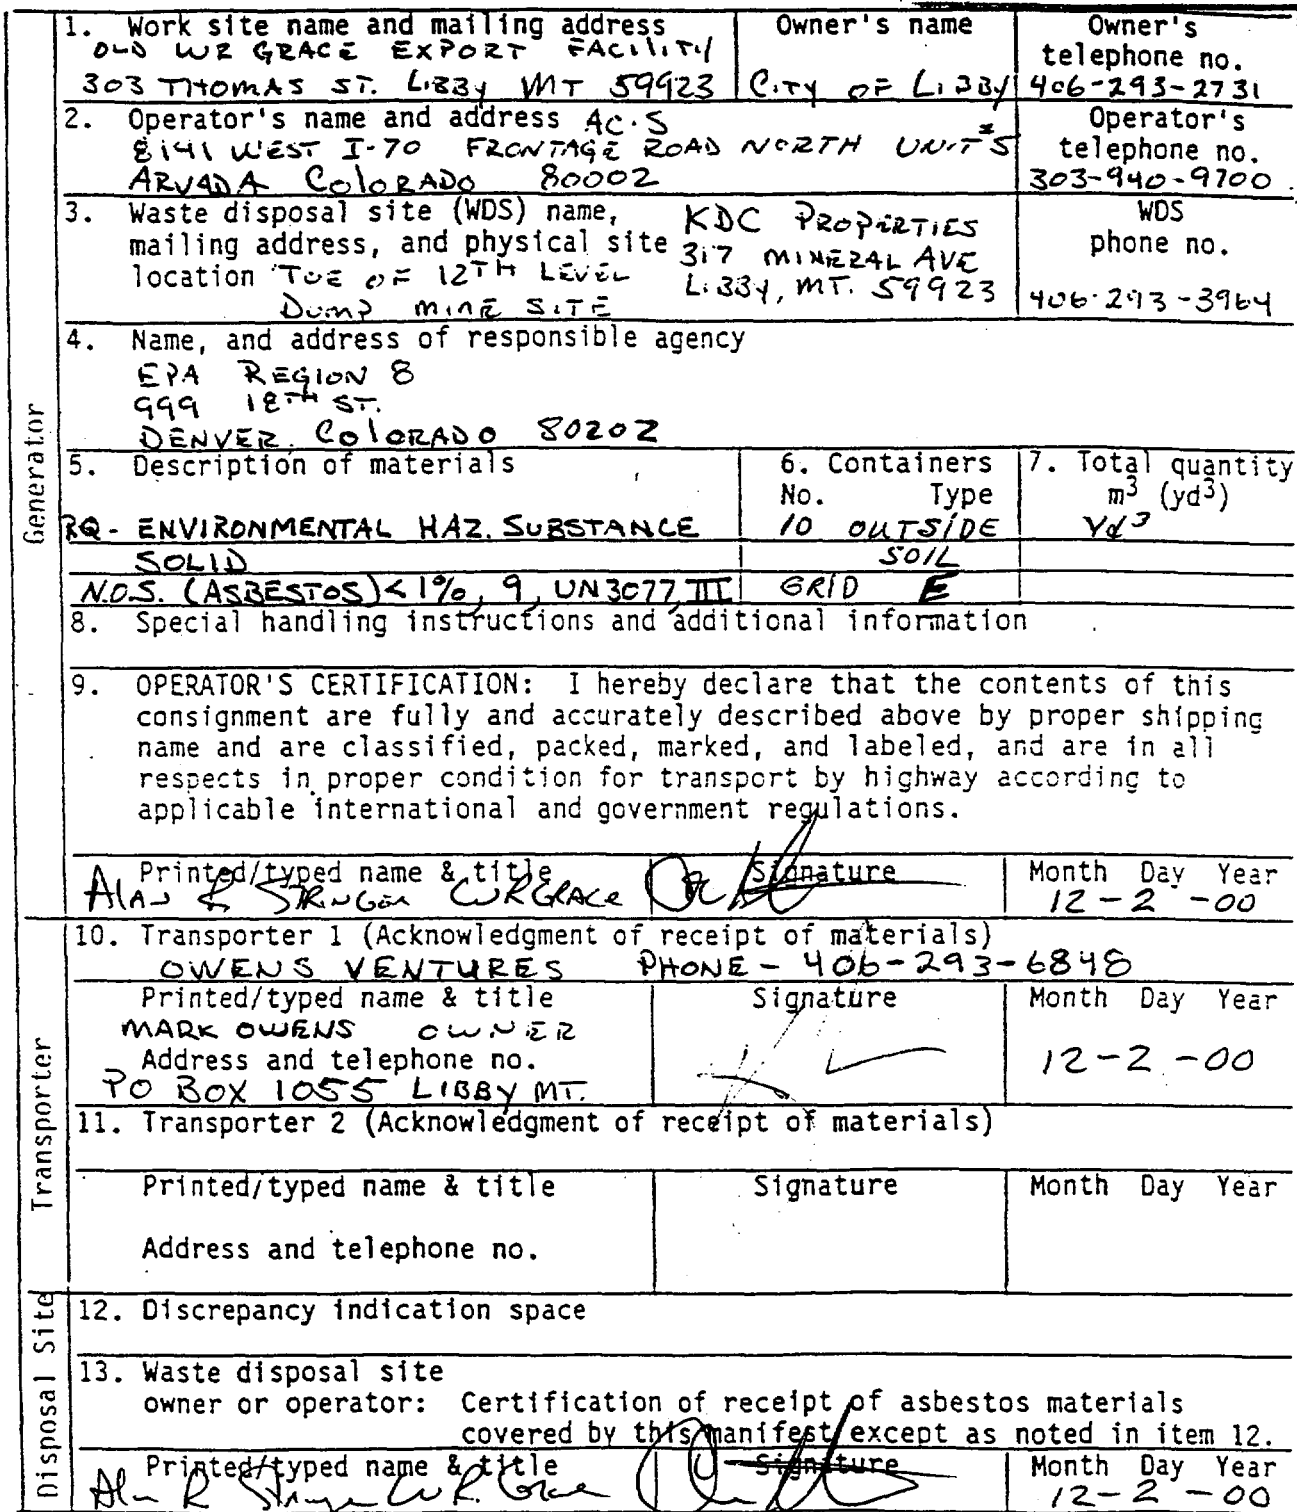 1. Work site name and mailing address
OLD WR GRACE EXPORT FACILITY
303 THOMAS ST. LIBBY MT 59923
Owner's name
CITY OF LIBBY
Owner's
telephone no.
406-293-2731
2. Operator's name and address AC·S
8141 WEST I-70 FRONTAGE ROAD NORTH UNIT #5
ARVADA COLORADO 80002
Operator's
telephone no.
303-940-9700
3. Waste disposal site (WDS) name,
mailing address, and physical site
location TOE OF 12TH LEVEL
DUMP MINE SITE
KDC PROPERTIES
317 MINERAL AVE
LIBBY, MT. 59923
WDS
phone no.
406-293-3964
4. Name, and address of responsible agency
EPA REGION 8
999 18TH ST.
DENVER, COLORADO 80202
Generator
5. Description of materials
6. Containers
No. Type
7. Total quantity
m³ (yd³)
RQ - ENVIRONMENTAL HAZ. SUBSTANCE
10 OUTSIDE
Yd³
SOLID
SOIL
N.O.S. (ASBESTOS) < 1%, 9, UN3077, III
GRID E
8. Special handling instructions and additional information
9. OPERATOR'S CERTIFICATION: I hereby declare that the contents of this
consignment are fully and accurately described above by proper shipping
name and are classified, packed, marked, and labeled, and are in all
respects in proper condition for transport by highway according to
applicable international and government regulations.
Printed/typed name & title
Alan R Stringer WR Grace
Signature
Month Day Year
12-2-00
Transporter
10. Transporter 1 (Acknowledgment of receipt of materials)
OWENS VENTURES PHONE - 406-293-6848
Printed/typed name & title
MARK OWENS OWNER
Address and telephone no.
PO BOX 1055 LIBBY MT.
Signature
Month Day Year
12-2-00
11. Transporter 2 (Acknowledgment of receipt of materials)
Printed/typed name & title
Signature
Month Day Year
Address and telephone no.
Disposal Site
12. Discrepancy indication space
13. Waste disposal site
owner or operator: Certification of receipt of asbestos materials
covered by this manifest except as noted in item 12.
Printed/typed name & title
Alan R Stringer W R Grace
Signature
Month Day Year
12-2-00